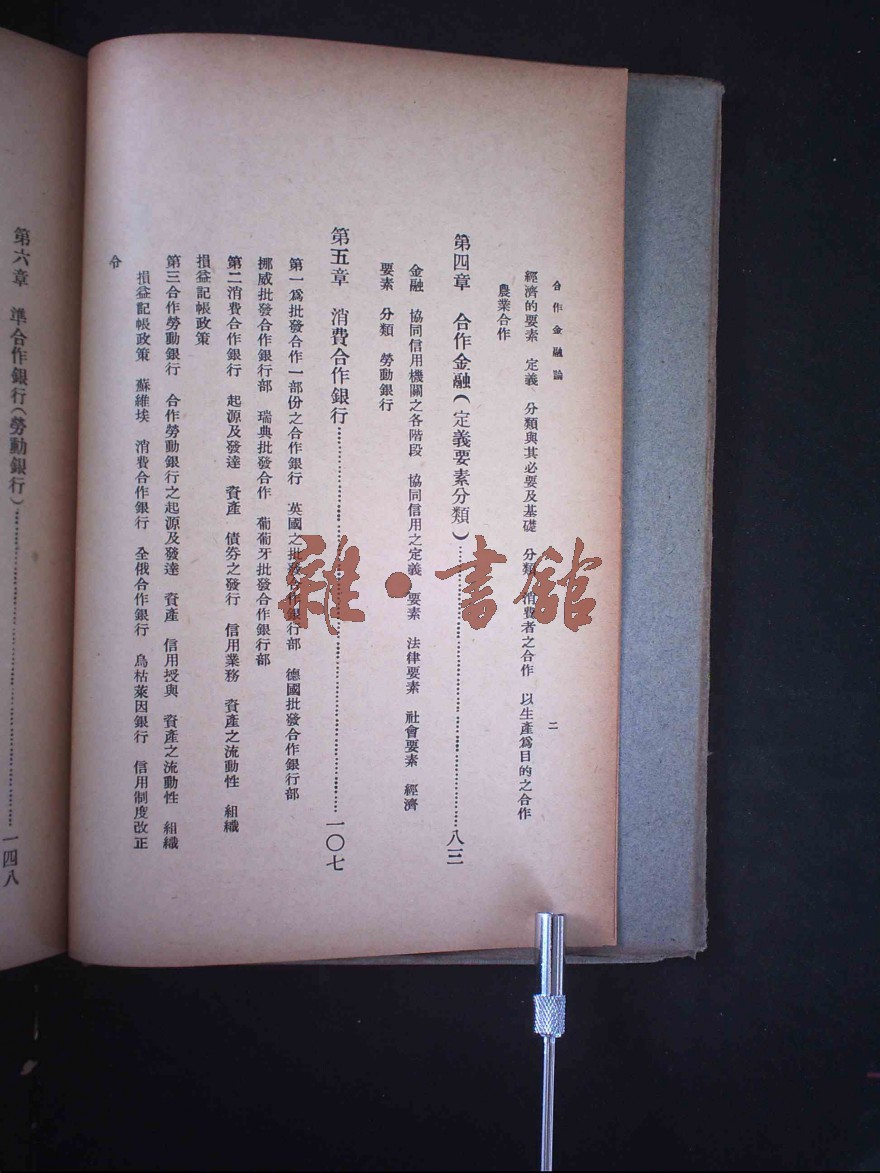 合作金融論
二
經濟的要素　定義　分類與其必要及基礎　分類　消費者之合作　以生產爲目的之合作
農業合作
第四章　合作金融(定義要素分類)……八三
金融　協同信用機關之各階段　協同信用之定義　要素　法律要素　社會要素　經濟
要素　分類　勞動銀行
第五章　消費合作銀行……一〇七
第一爲批發合作一部份之合作銀行　英國之批發合作銀行部　德國批發合作銀行部
挪威批發合作銀行部　瑞典批發合作　葡萄牙批發合作銀行部
第二消費合作銀行　起源及發達　資產　債券之發行　信用業務　資產之流動性　組織
損益記帳政策
第三合作勞動銀行　合作勞動銀行之起源及發達　資產　信用授與　資產之流動性　組織
損益記帳政策　蘇維埃　消費合作銀行　全俄合作銀行　烏枯萊因銀行　信用制度改正
令
第六章　準合作銀行(勞動銀行)……一四八
雜·書館